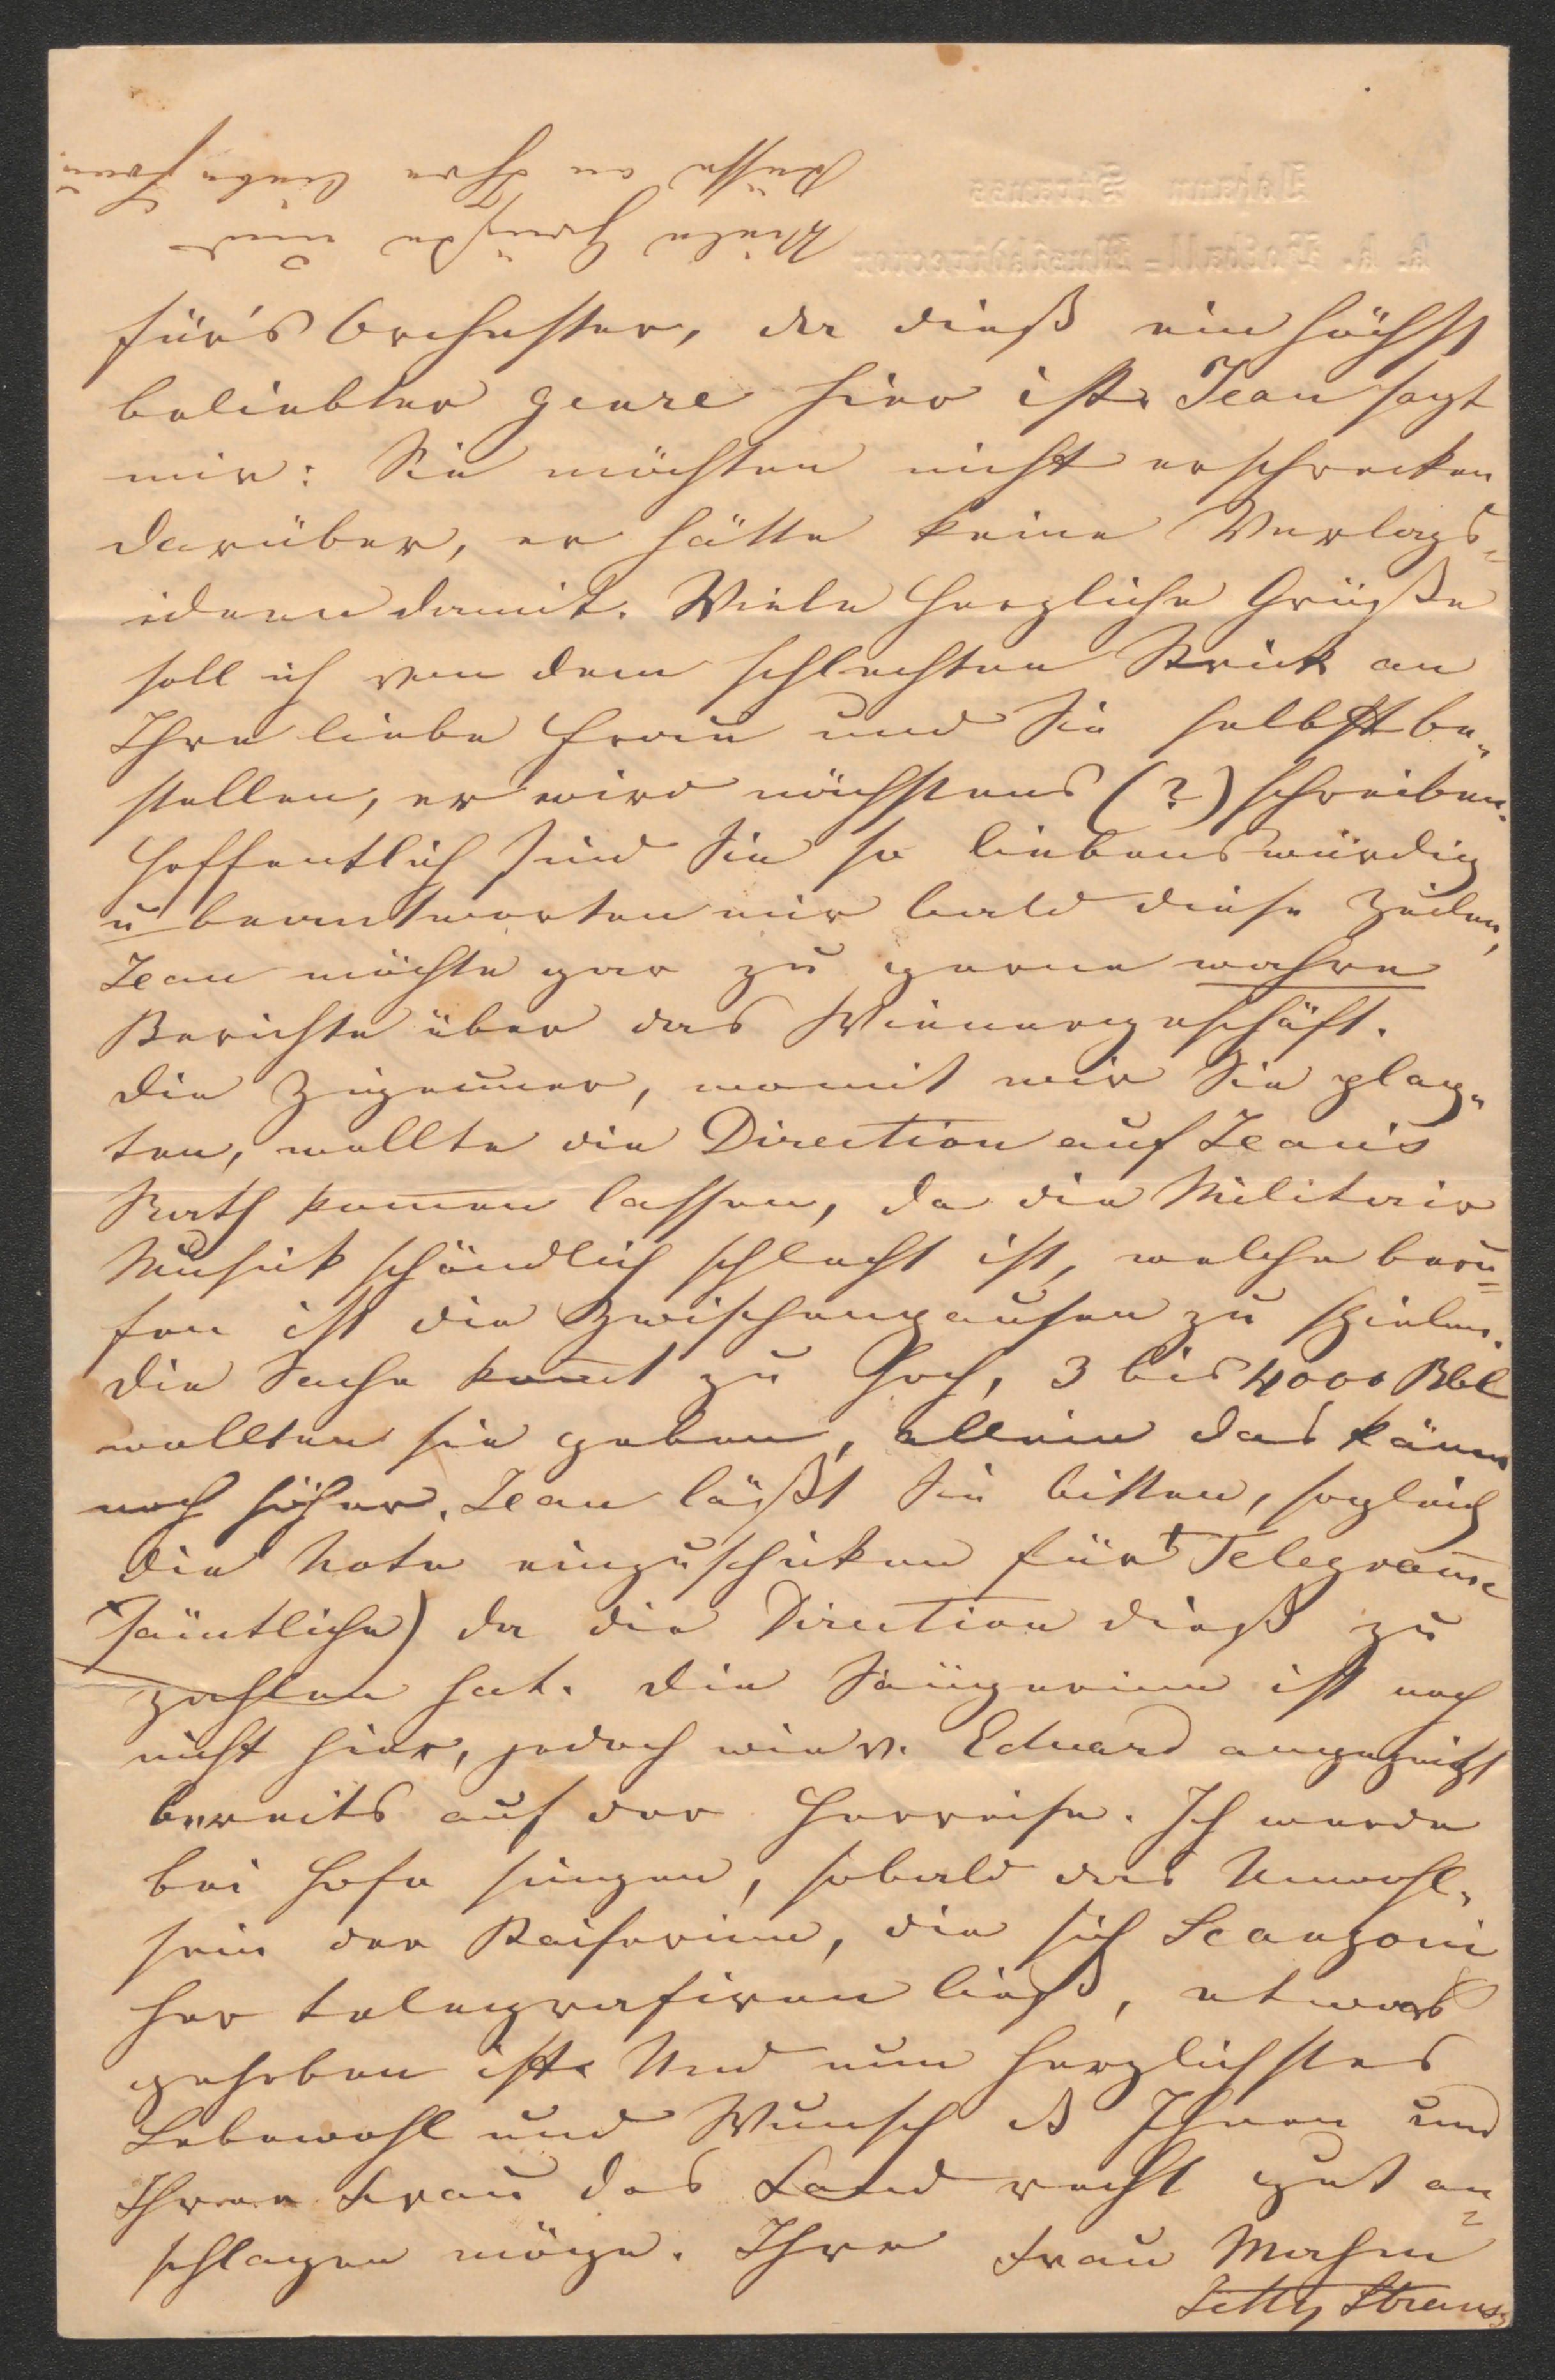 Viele Grüße und
Küsse an Ihre liebe Frau.
Johann Strauss
k. k. Hofball-Musikdirector
für's Orchester, da dieß ein höchst
beliebter genre hier ist. Jean sagt
mir: Sie möchten nicht erschrecken
darüber, er hätte keine Verlags-
ideen damit. Viele herzliche Grüße
soll ich von dem schlechten Strick an
Ihre liebe Frau und Sie selbst be-
stellen, er wird nächstens (?) schreiben.
Hoffentlich sind Sie so liebenswürdig
u beantworten mir bald diese Zeilen,
Jean möchte gar zu gerne wahre
Berichte über das Wienergeschäft.
Die Zigeuner, womit wir Sie plag-
ten, wollte die Direction auf Jean's
Rath kom̄en lassen, da die Militair
Musik schändlich schlecht ist, welche beru-
fen ist die Zwischenpausen zu spielen.
Die Sache kom̄t zu hoch, 3 bis 4000 Rbl
wollten sie geben, allein das käme
noch höher. Jean läßt Sie bitten, sogleich
die Note einzuschicken für + Telegram̄e
+ säm̄tliche) da die Direction dieß zu
zahlen hat. Die Sängerinn ist noch
nicht hier, jedoch wie v. Eduard angezeigt
bereits auf der Herreise. Ich werde
bei Hofe singen, sobald das Unwohl-
sein der Kaiserinn, die sich Scanzoni
her telegrafiren ließ, etwas
gehoben ist. Und nun herzlichstes
Lebewohl und Wunsch daß Ihnen und
Ihrer Frau das Land recht gut an-
schlagen möge. Ihre Frau Mahm
Jetty Strauss